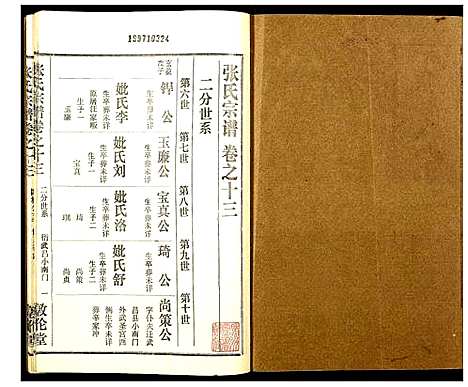 199710224
张氏宗谱 卷之十三
二分世系
第六世 第七世 第八世 第九世 第十世
锝公
妣氏李
生卒葬未详
生子一
玉廉
玉廉公
妣氏刘
生卒葬未详
生子一
宝真
宝真公
妣氏洛
生卒葬未详
生子二
琦
琪
琦公
妣氏舒
生卒葬未详
生子二
尚策
尚贞
尚策公
字仆夫迁武
昌县小南门
外武圣宫四
生卒葬未详
葬左家冲
张氏宗谱卷之十三
二分世系
衍武昌小南门
敦伦堂